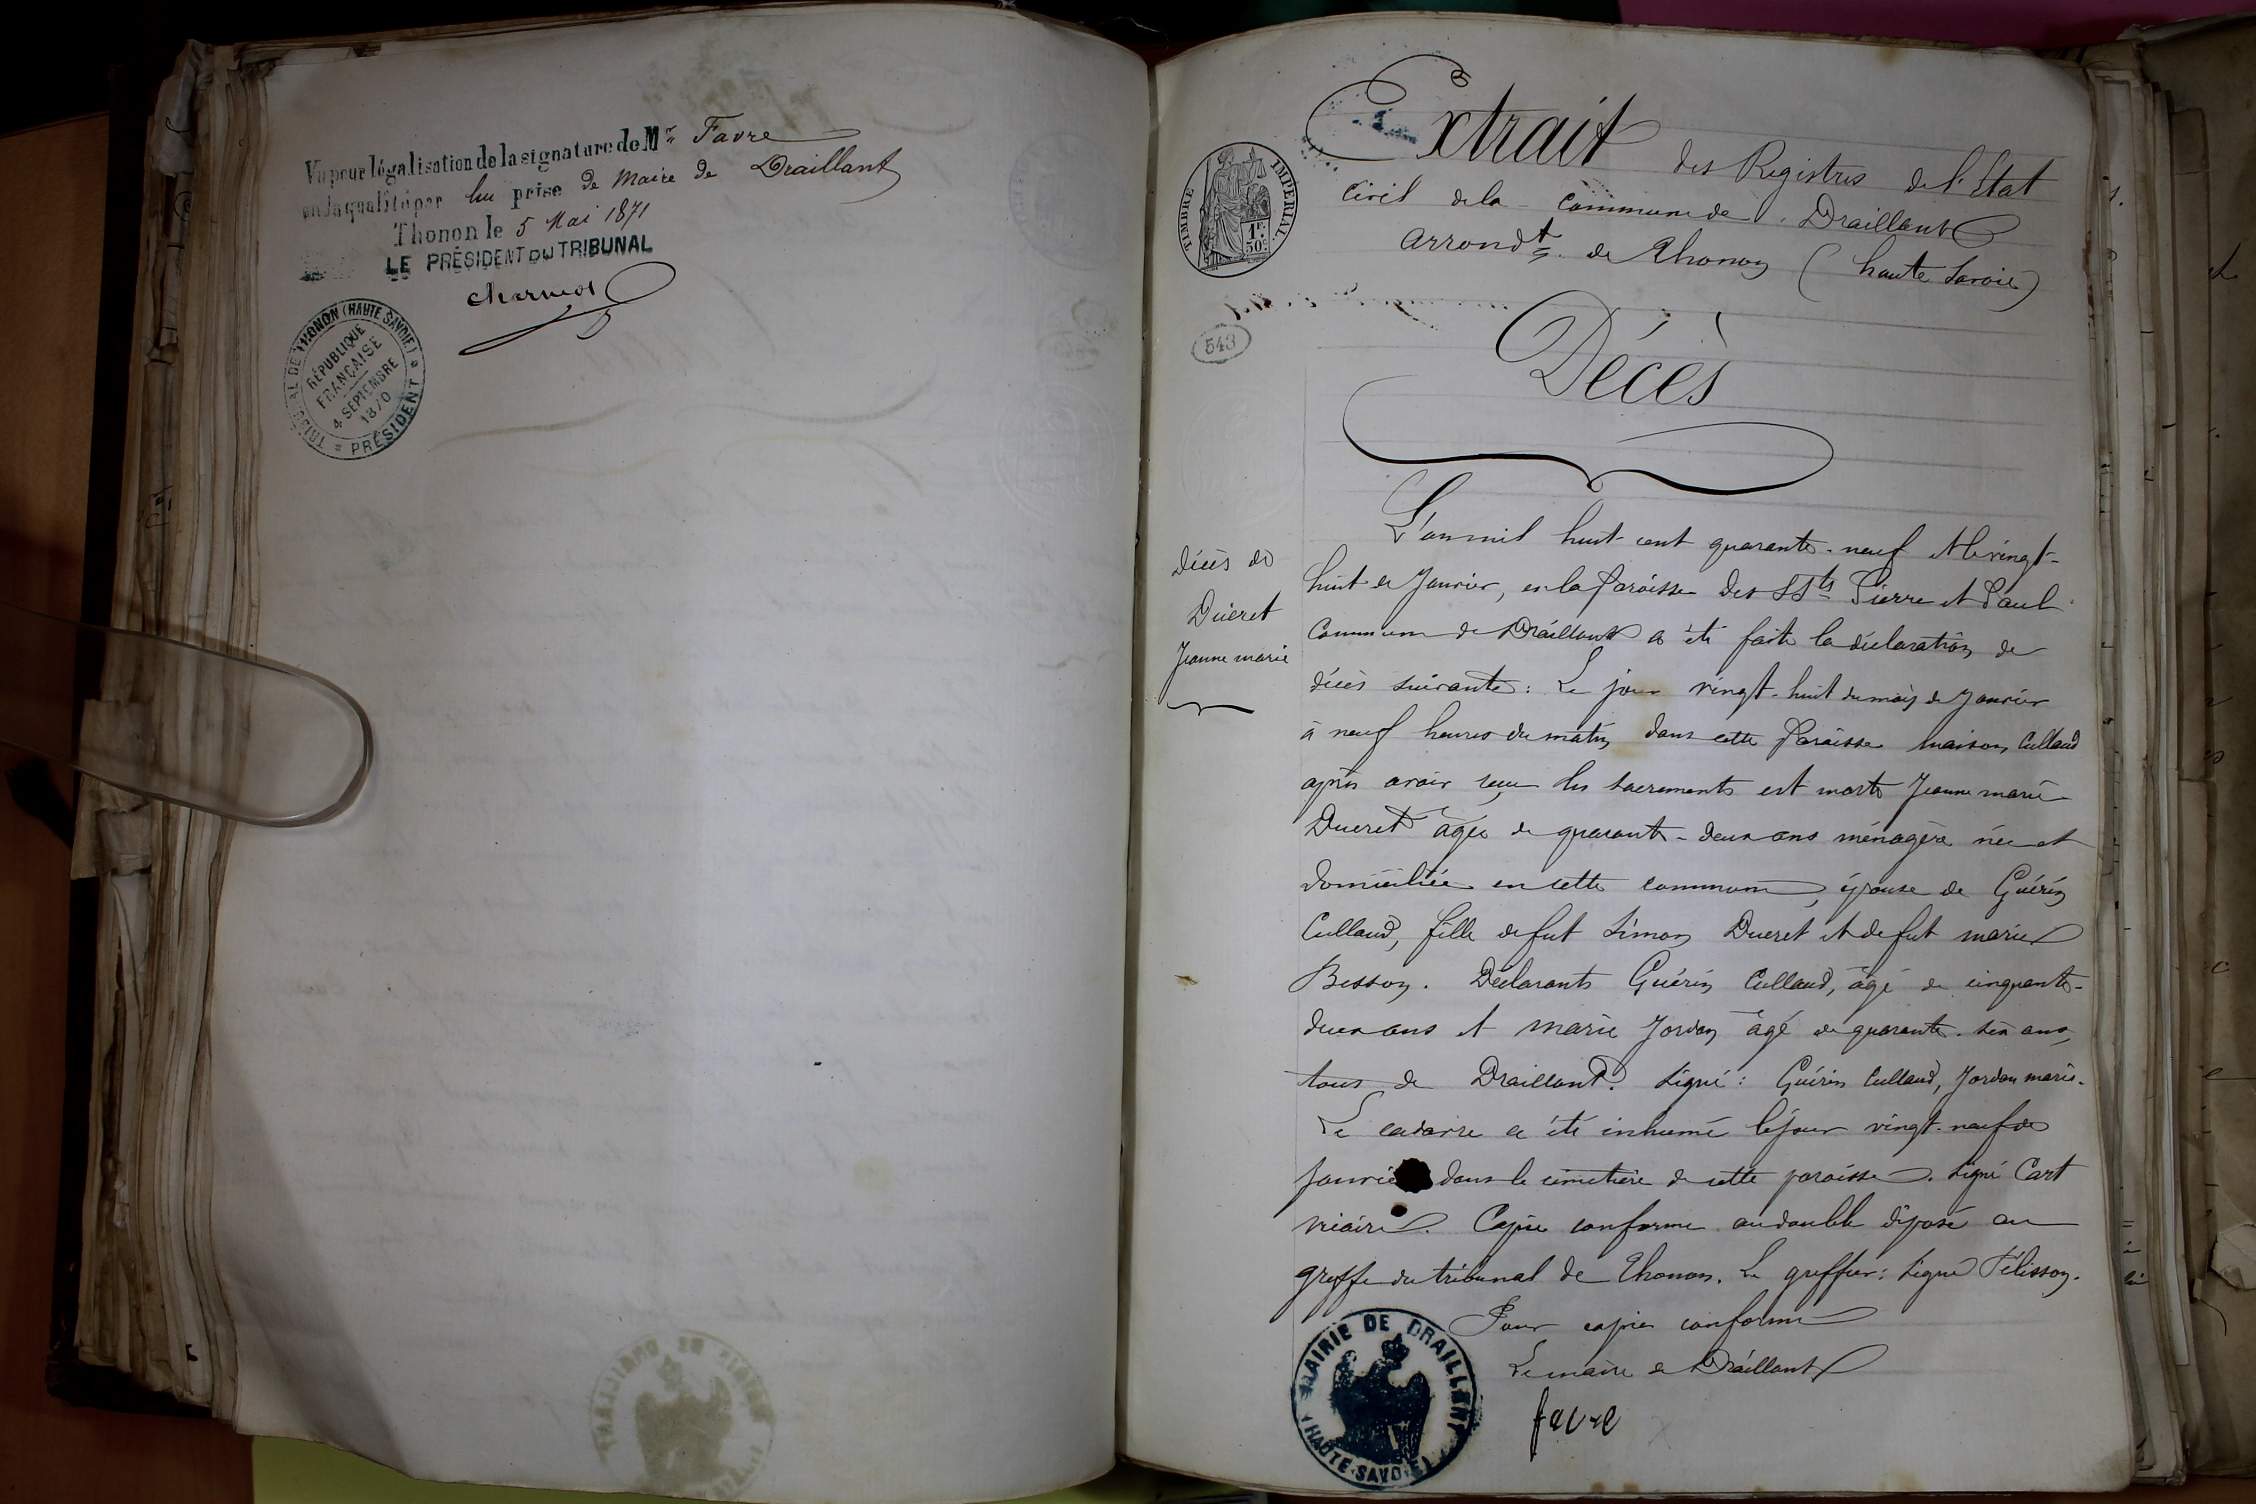 Vu pour légalisation de la signature de Mr Favre
en la qualité par lui prise de Maire de Draillant
Thonon le 5 Mai 1871
LE PRÉSIDENT DU TRIBUNAL
TRIBUNAL DE THONON (HAUTE SAVOIE)
PRÉSIDENT
RÉPUBLIQUE
FRANÇAISE
4 SEPTEMBRE
1870
Extrait des Registres de l'Etat
civil de la commune de Draillant
arrondt. de Thonon (haute Savoie)
TIMBRE IMPÉRIAL
1F.
50c.
543
Décès
Décès de
Ducret
Jeanne marie
L'an mil huit-cent quarante-neuf et le vingt-
huit de Janvier, en la Paroisse des SSts Pierre et Paul
Commune de Draillant a été faite la déclaration de
décès suivante: Le jour vingt-huit du mois de Janvier
à neuf heures du matin dans cette Paroisse maison Cullaud
après avoir reçu les sacrements est morte Jeanne marie
Ducret âgée de quarante-deux ans ménagère née et
domiciliée en cette commune, épouse de Guérin
Cullaud, fille de fut Simon Ducret et de fut marie
Besson. Déclarants Guérin Cullaud, âgé de cinquante-
deux ans et marie Jordan âgé de quarante-six ans,
tous de Draillant. Signé: Guérin Cullaud, Jordan marie.
Le cadavre a été inhumé le jour vingt-neuf de
Janvier dans le cimetière de cette paroisse. Signé Cart
vicaire. Copie conforme au double déposé au
greffe du tribunal de Thonon. Le greffier: Signé Pélisson.
Pour copie conforme
Le maire de Draillant
favre
MAIRIE DE DRAILLANT
(HAUTE-SAVOIE)